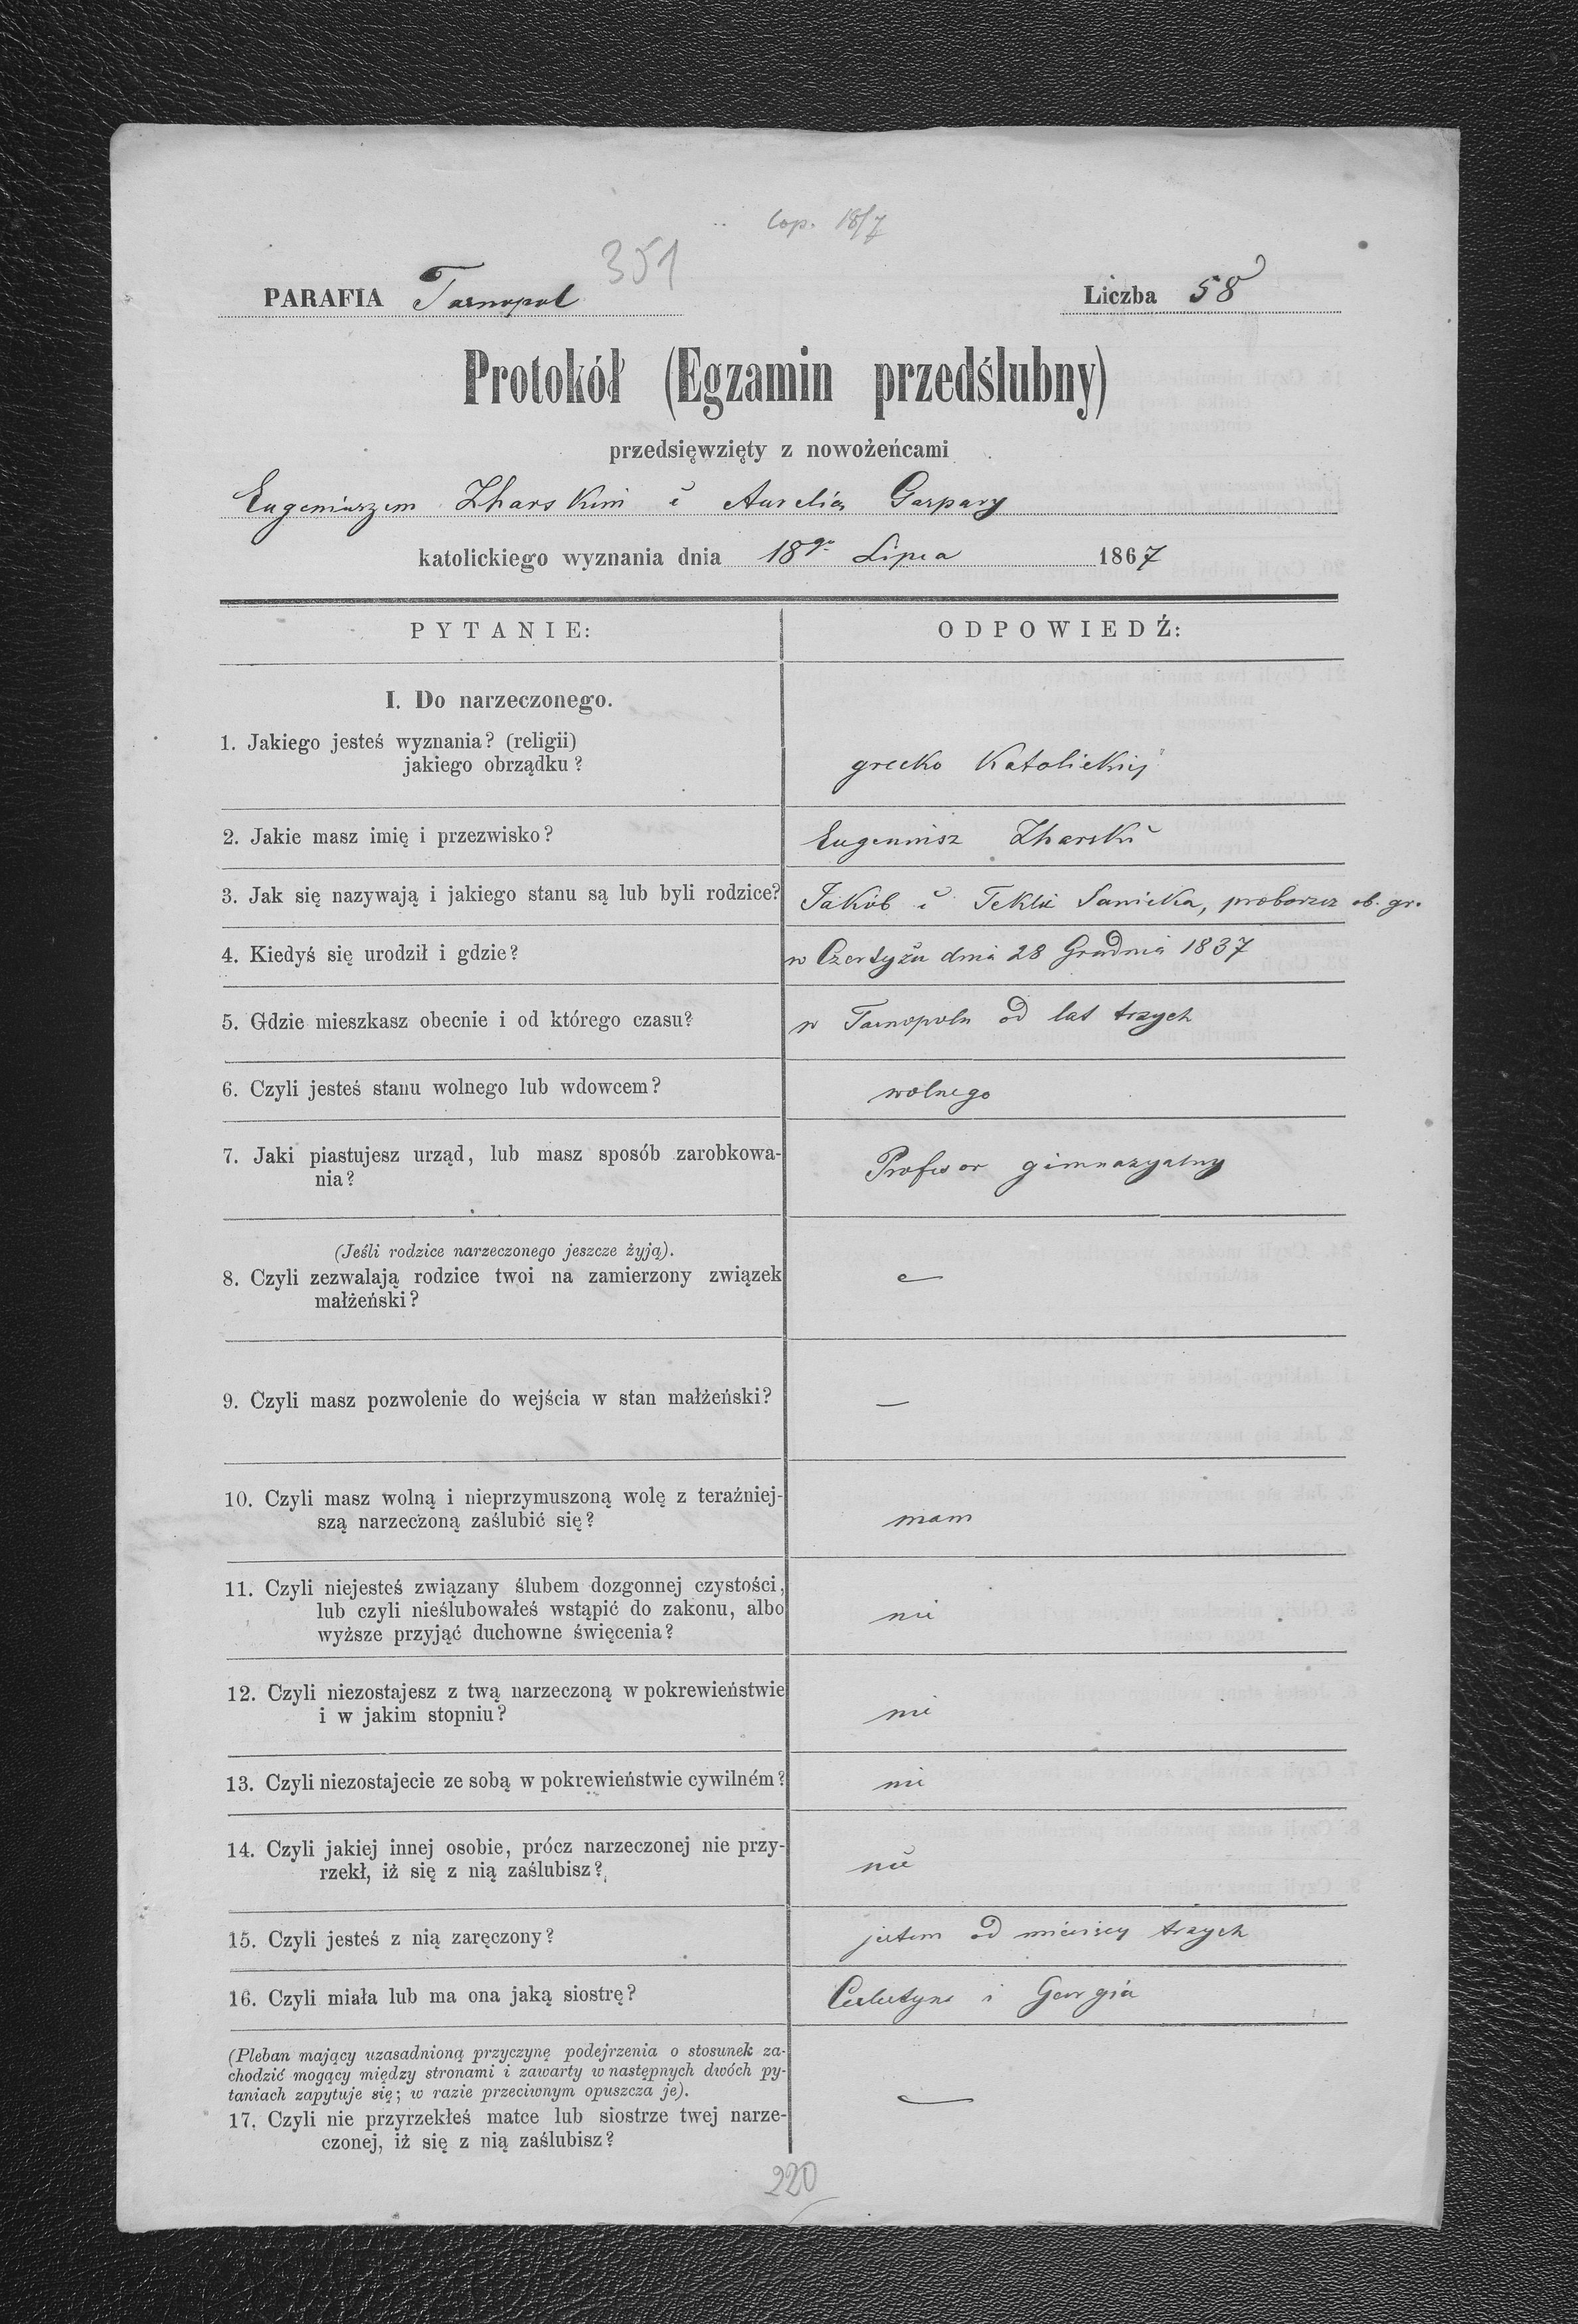 Cop. 18/7
351
PARAFIA Tarnopol
Liczba 58
Protokół (Egzamin przedślubny)
przedsięwzięty z nowożeńcami
Eugeniuszem Zharskim i Aurelią Gaspary
katolickiego wyznania dnia 18go Lipca 1867
PYTANIE:
ODPOWIEDŹ:
I. Do narzeczonego.
1. Jakiego jesteś wyznania? (religii)
jakiego obrządku?
grecko Katolickiej
2. Jakie masz imię i przezwisko?
Eugeniusz Zharski
3. Jak się nazywają i jakiego stanu są lub byli rodzice?
Jakób i Tekla Sanicka, proboszcz ob. gr.
4. Kiedyś się urodził i gdzie?
w Czertyżu dnia 28 Grudnia 1837
5. Gdzie mieszkasz obecnie i od którego czasu?
w Tarnopolu od lat trzych
6. Czyli jesteś stanu wolnego lub wdowcem?
wolnego
7. Jaki piastujesz urząd, lub masz sposób zarobkowa-
nia?
Profesor gimnazyalny
(Jeśli rodzice narzeczonego jeszcze żyją).
8. Czyli zezwalają rodzice twoi na zamierzony związek
małżeński?
—
9. Czyli masz pozwolenie do wejścia w stan małżeński?
—
10. Czyli masz wolną i nieprzymuszoną wolę z teraźniej-
szą narzeczoną zaślubić się?
mam
11. Czyli niejesteś związany ślubem dozgonnej czystości,
lub czyli nieślubowałeś wstąpić do zakonu, albo
wyższe przyjąć duchowne święcenia?
nie
12. Czyli niezostajesz z twą narzeczoną w pokrewieństwie
i w jakim stopniu?
nie
13. Czyli niezostajecie ze sobą w pokrewieństwie cywilném?
nie
14. Czyli jakiej innej osobie, prócz narzeczonej nie przy-
rzekł, iż się z nią zaślubisz?
nie
15. Czyli jesteś z nią zaręczony?
jestem od miesięcy trzych
16. Czyli miała lub ma ona jaką siostrę?
i Georgia
(Pleban mający uzasadnioną przyczynę podejrzenia o stosunek za-
chodzić mogący między stronami i zawarty w następnych dwóch py-
taniach zapytuje się; w razie przeciwnym opuszcza je).
17. Czyli nie przyrzekłeś matce lub siostrze twej narze-
czonej, iż się z nią zaślubisz?
—
220